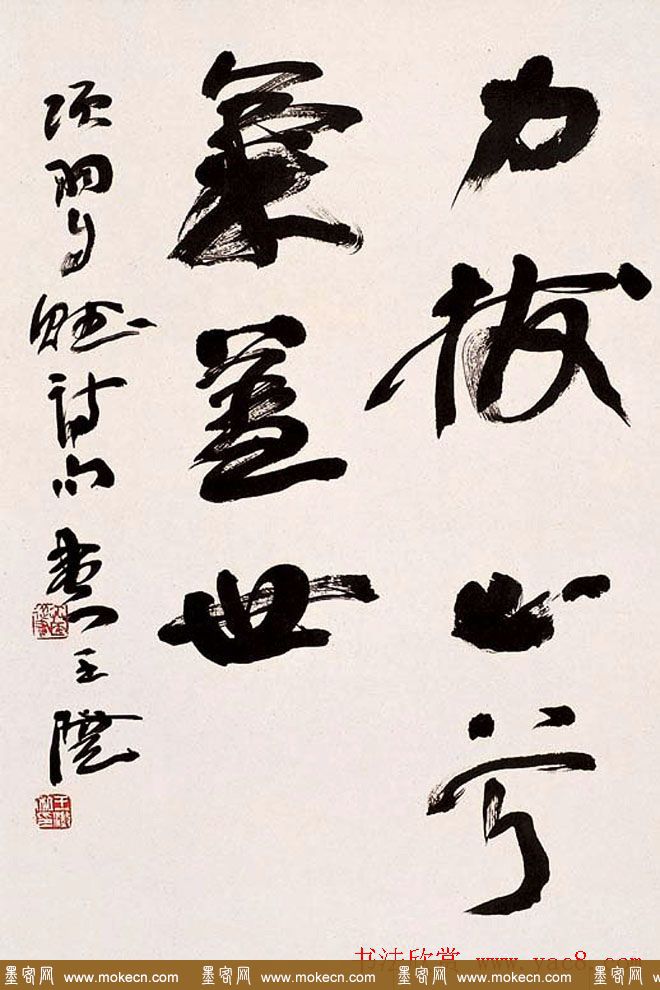 力拔山兮
氣蓋世
項羽自賦詩句 王
书法欣赏 www.yac8.com
墨客网 www.mokecn.com 墨客网 www.mokecn.com 墨客网 www.mokecn.com 墨客网 w